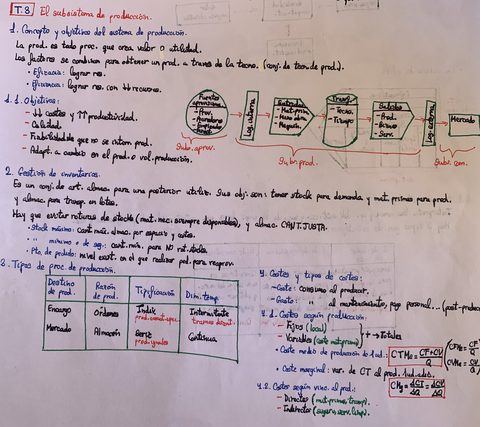 T.8 El subsistema de producción.
1. Concepto y objetivos del sistema de producción.
La prod. es todo proc. que crea valor o utilidad.
Los factores se combinan para obtener un prod. a través de la tecno. (conj. de tecn de prod.).
• Eficacia: lograr res.
• Eficiencia: lograr res. con ↓↓ recursos.
1.1. Objetivos:
- ↓↓ costes y ↑↑ productividad.
- Calidad
- Fiabilidad de que no se interr. prod.
- Adapt. a cambio en el prod. o vol. producción.
Log. interna
Entradas
- Mat. prim
- Mano obra
- Maquin.
Transf.
- Tecno.
- Tiempo
Salidas
- Prod.
- Bienes
- Serv.
Log. externa
Mercado
Subs. aprov.
Subs. prod.
Subs. com.
2. Gestión de inventarios.
Es un conj. de art. almac. para una posterior utiliz. Sus obj. son: tener stock para demanda y mat. primas para prod.
y almac. para transp. en lotes.
Hay que evitar roturas de stocks (mat. nec. siempre disponibles), y almac. CANT. JUSTA.
• Stock máximo: cant. máx. almac. por espacio y costes.
• " mínimo o de seg.: cant. mín. para NO rot. stocks
• Pto. de pedido: nivel exist. en el que realizar ped. para reaprov.
3. Tipos de proc. de producción.
Destino de prod. Razón de prod. Tipificación Dim. temp.
Encargo Órdenes Indiv. Intermitente
Mercado Almacén Serie Continua
prod. iguales
4. Costes y tipos de costes:
- Coste: consumo al producir.
- Gasto: " al mantenimiento, pago personal...
4.1. Costes según producción:
- Fijos (local)
- Variables (coste mat. prima)
+ → Totales
• Coste medio de producción de 1 ud.: CTMe = CF+CV / Q
• Coste marginal: var. de CT al prod. 1 ud. adic.
CMg = ΔCT / ΔQ = ΔCV / ΔQ
4.2. Costes según vinc. al prod.:
- Directos (mat. primas, transp).
- Indirectos